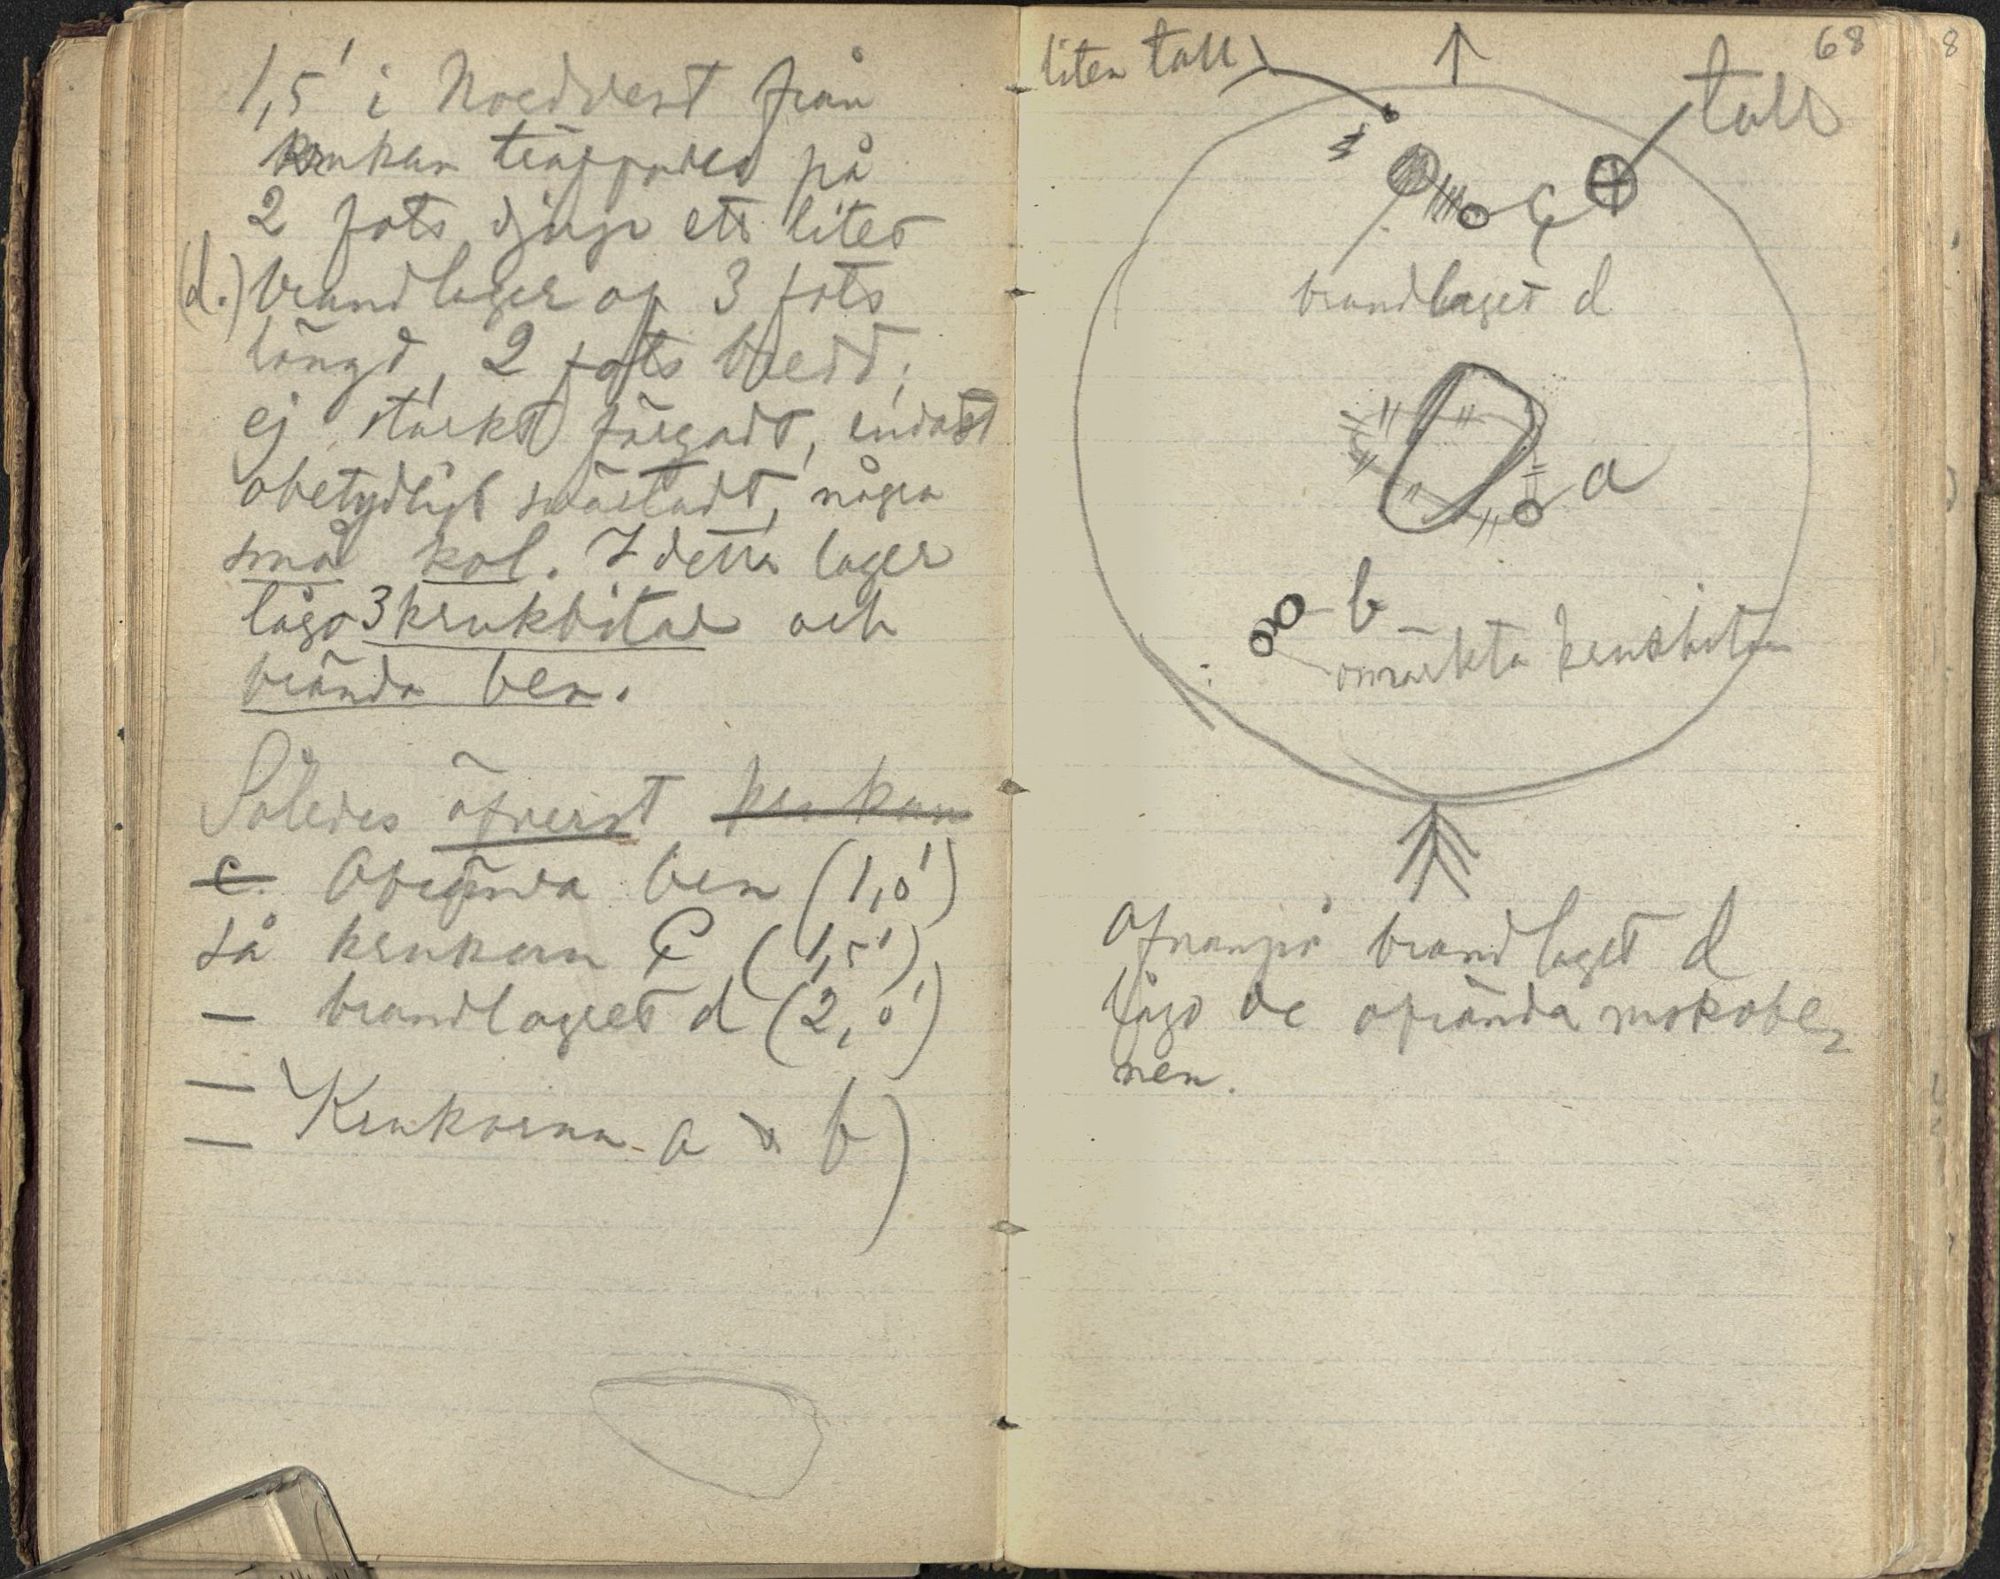 1,5' i Nordvest från
krukan träffades på
2 fots djup ett litet
(d.) brandlager af 3 fots
längd, 2 fots bredd;
ej starkt färgadt, endast
obetydligt svärtadt, några
små kol. I detta lager
lågo 3 krukbitar och
brända ben.
Således öfverst krukan
c. Obrända ben (1,0')
så krukan C (1,5')
— brandlagret d (2,0')
—
— Krukorna a & b)
68
8
liten tall
tall
c
brandlaget d
a
b
omärkta krukbitar
Ofvanpå brandlaget d
lågo de obrända
nen.